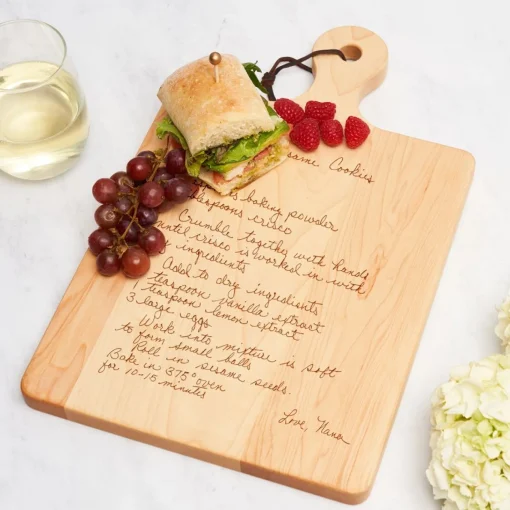 same Cookies
baking powder
crisco
Crumble together with hands
until crisco is worked in with
ingredients
Add to dry ingredients
teaspoon vanilla extract
1 teaspoon lemon extract
3 large eggs
Work into mixture is soft
to form small balls
Roll in sesame seeds.
Bake in 375° oven
for 10-15 minutes
Love, Nana